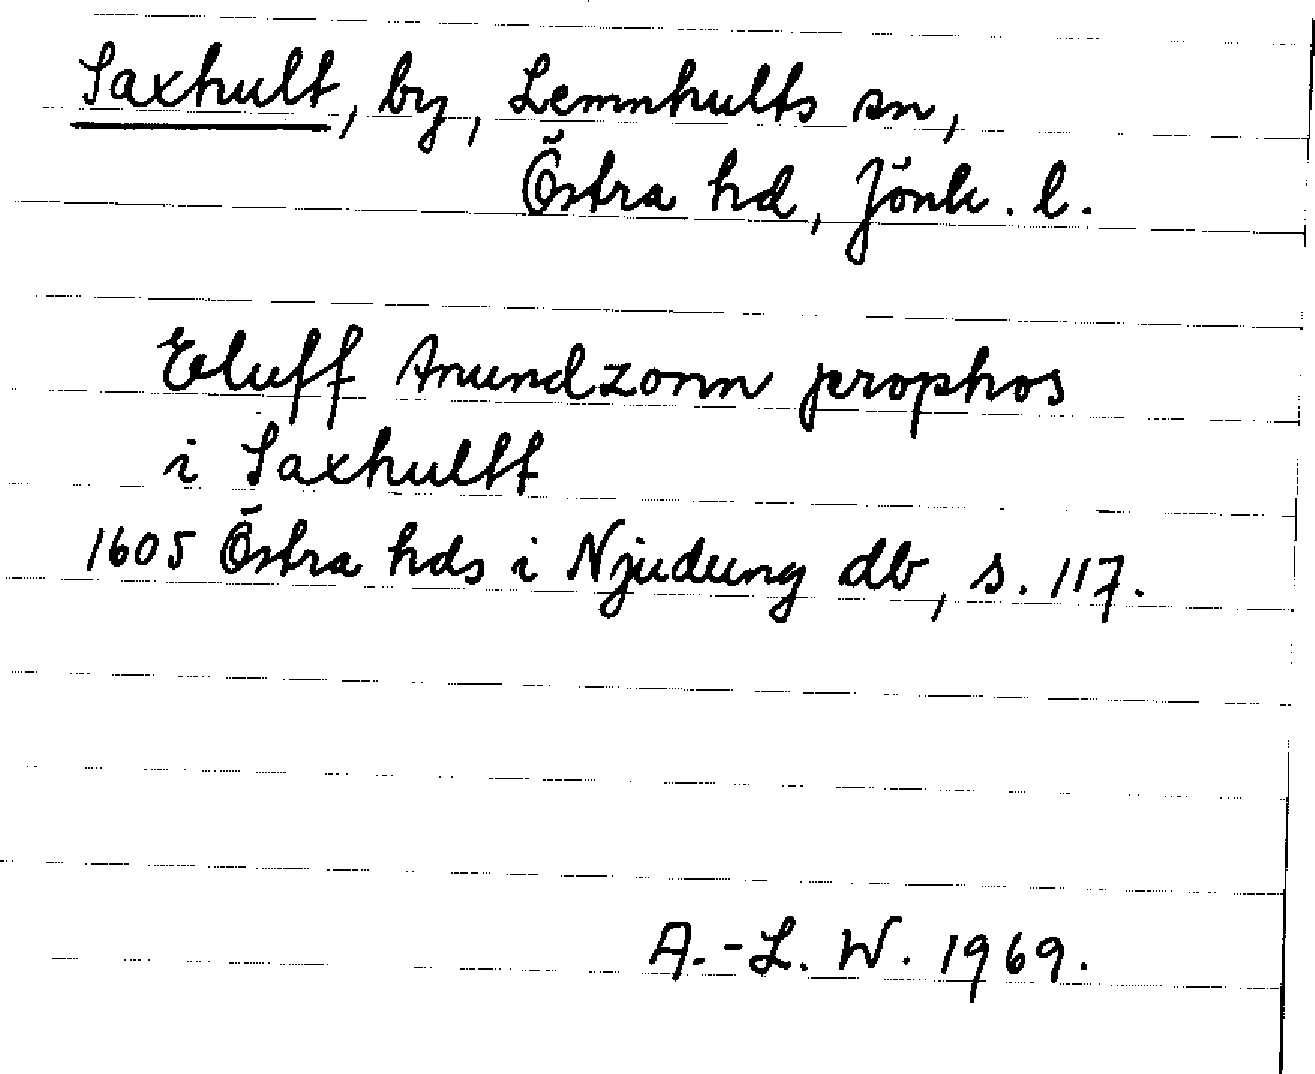 Saxhult, by, Lemnhults sn,
Östra hd, Jönk. l.
Eluff Amundzonn prophos
i Saxhultt
1605 Östra hds i Njudung db, s. 117.
A.-L. W. 1969.